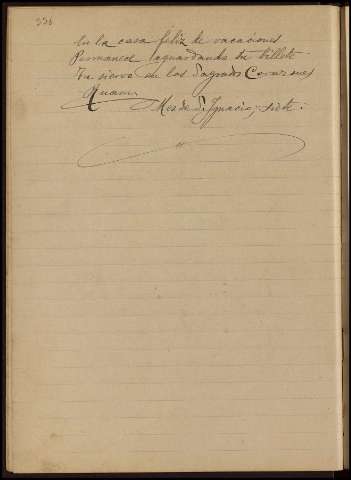 336
En la casa feliz de vacaciones
Permanece aguardando tu billete
Tu siervo en los Sagrados Corazones
Mes de S. Ignacio, siete.